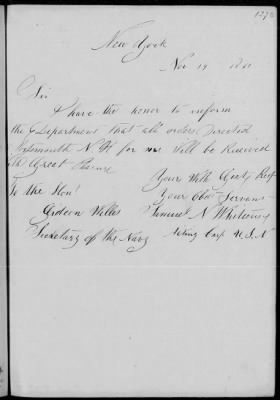 New York
Nov 19
Sir
I have the honor to inform
the Department that all orders directed
Portsmouth N.H for me will be received
with Great Pleasure
Yours With Great Resp
Your Obt Servant
Samuel N
Acting U.S.N
To the Hon
Gideon Welles
Secretary of the Navy